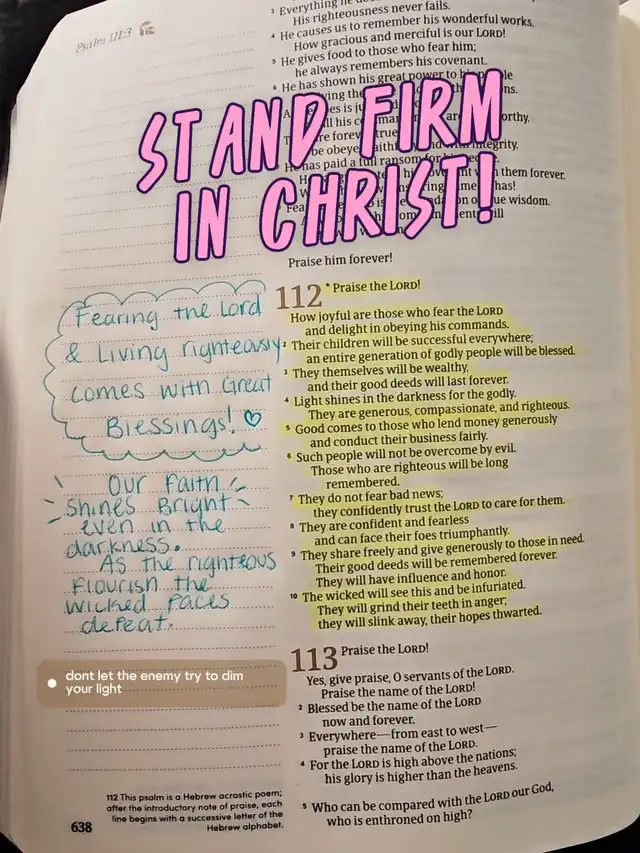 Psalm 111:3
³ Everything he do
His righteousness never fails.
⁴ He causes us to remember his wonderful works.
How gracious and merciful is our LORD!
⁵ He gives food to those who fear him;
he always remembers his covenant.
⁶ He has shown his great power to his people
STAND FIRM
IN CHRIST!
Praise him forever!
112 * Praise the LORD!
How joyful are those who fear the LORD
and delight in obeying his commands.
² Their children will be successful everywhere;
an entire generation of godly people will be blessed.
³ They themselves will be wealthy,
and their good deeds will last forever.
⁴ Light shines in the darkness for the godly.
They are generous, compassionate, and righteous.
⁵ Good comes to those who lend money generously
and conduct their business fairly.
⁶ Such people will not be overcome by evil.
Those who are righteous will be long
remembered.
⁷ They do not fear bad news;
they confidently trust the LORD to care for them.
⁸ They are confident and fearless
and can face their foes triumphantly.
⁹ They share freely and give generously to those in need.
Their good deeds will be remembered forever.
They will have influence and honor.
¹⁰ The wicked will see this and be infuriated.
They will grind their teeth in anger;
they will slink away, their hopes thwarted.
113 Praise the LORD!
Yes, give praise, O servants of the LORD.
Praise the name of the LORD!
² Blessed be the name of the LORD
now and forever.
³ Everywhere—from east to west—
praise the name of the LORD.
⁴ For the LORD is high above the nations;
his glory is higher than the heavens.
⁵ Who can be compared with the LORD our God,
who is enthroned on high?
Fearing the Lord
& Living righteously
comes with Great
Blessings! ♡
Our Faith
Shines Bright
even in the
darkness.
As the righteous
flourish the
wicked faces
defeat.
dont let the enemy try to dim
your light
112 This psalm is a Hebrew acrostic poem;
after the introductory note of praise, each
line begins with a successive letter of the
Hebrew alphabet.
638